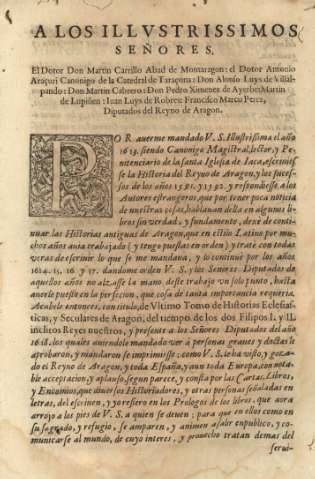 A LOS ILLVSTRISSIMOS
SEÑORES,
El Dotor Don Martin Carrillo Abad de Montaragon: el Dotor Antonio
Araçuri Canonigo de la Catedral de Taraçona: Don Alonso Luys de Villal-
pando: Don Martin Cabrero: Don Pedro Ximenez de Ayerbe: Martin
de Lupiñen: Iuan Luys de Robres: Francisco Marco Perez,
Diputados del Reyno de Aragon.
POR auerme mandado V. S. Illustrissima el año
1613. siendo Canonigo Magistral, letor, y Pe-
nitenciario de la santa Iglesia de Iaca, escriuies-
se la Historia del Reyno de Aragon, y los suces-
sos de los años 1591. y 1592. y respondiesse a los
Autores estrangeros, que por tener poca noticia
de nuestras cosas, hablauan dellas en algunos li-
bros sin verdad, y fundamento, dexè de conti-
nuar las Historias antiguas de Aragon, que en estilo Latino por mu-
chos años auia trabajado (y tengo puestas en orden) y tratè con todas
veras de escriuir lo que se me mandaua, y lo continuè por los años
1614. 15. 16. y 17. dandome orden V. S. y los Señores Diputados de
aquellos años no alçasse la mano deste trabajo vn solo punto, hasta
auerle puesto en la perfecion, que cosa de tanta importancia requeria.
Acabele entonces, con titulo, de Vltimo Tomo de Historias Eclesias-
ticas, y Seculares de Aragon, del tiempo de los dos Filipos I. y II.
inclitos Reyes nuestros, y presentè a los Señores Diputados del año
1618. los quales auiendole mandado ver à personas graues y doctas le
aprobaron, y mandaron se imprimiesse: como V. S. le ha visto, y goza-
do el Reyno de Aragon, y toda España, y aun toda Europa, con nota-
ble acceptacion, y aplauso, segun parece, y consta por las Cartas, Libros,
y Encomios, que diuersos Historiadores, y otras personas señaladas en
letras, del escriuen, y yo refiero en los Prologos de los libros, que aora
arrojo a los pies de V. S. a quien se deuen; para que en ellos como en
su sagrado, y refugio, se amparen, y animen a salir en publico, y co-
municarse al mundo, de cuyo interes, y prouecho tratan demas del
serui-